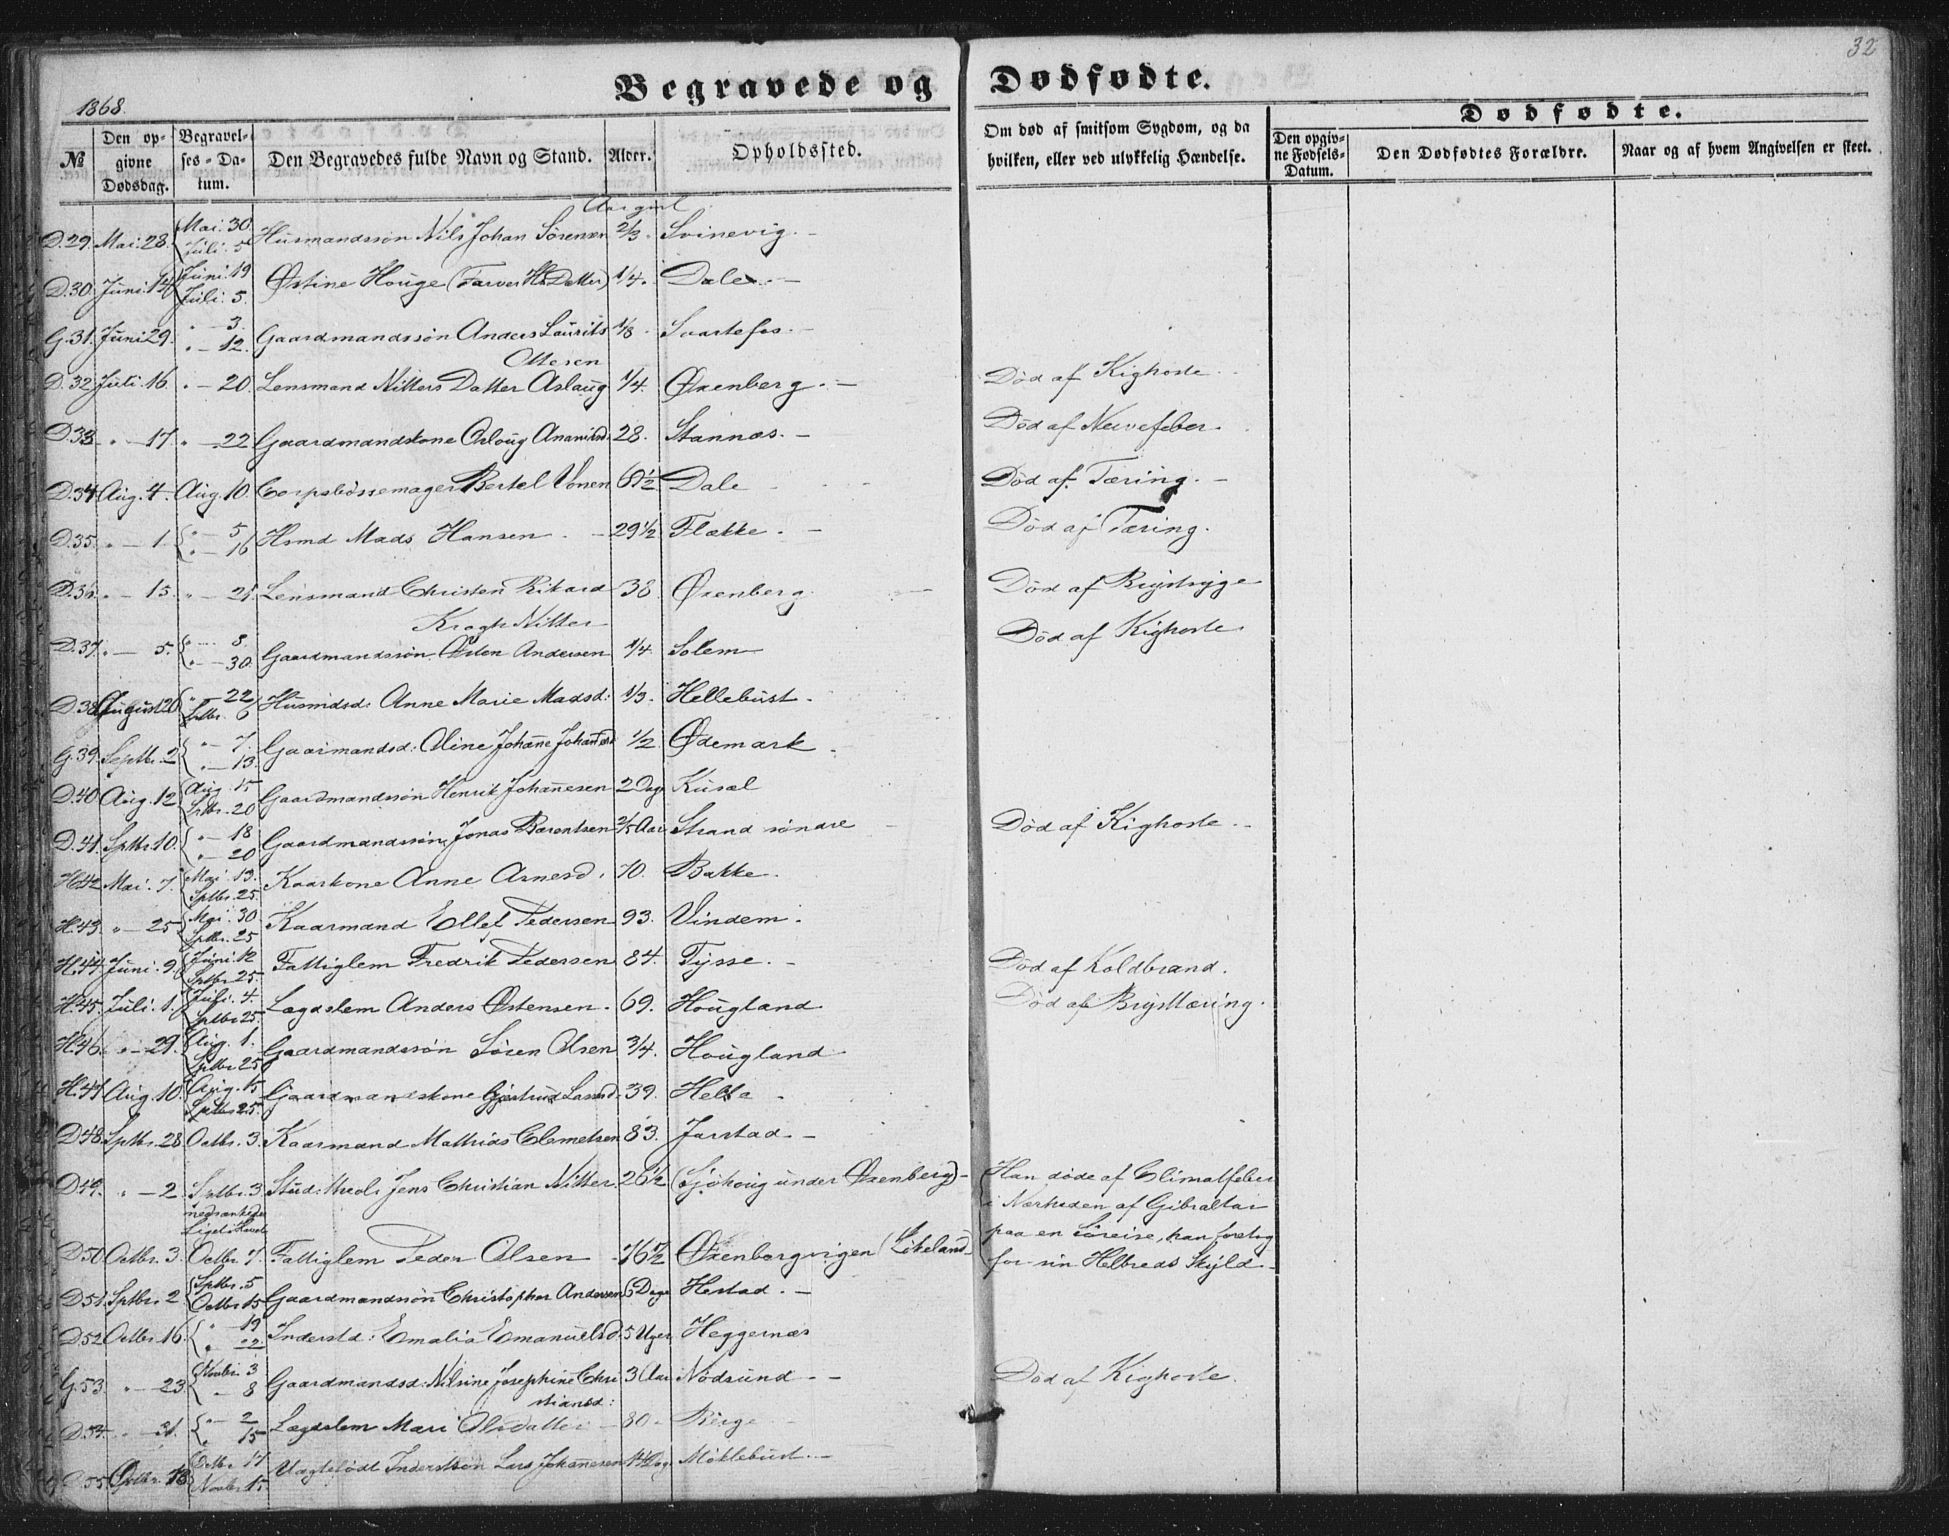 32
Begravede og Dødfødte.
1868.
Dødfødte.
№
Den opgivne Dødsdag.
Begravelses-Datum.
Den Begravedes fulde Navn og Stand.
Alder.
Opholdssted.
Om død af smitsom Sygdom, og da hvilken, eller ved ulykkelig Hændelse.
Den opgivne Fødsels-Datum.
Den Dødfødtes Forældre.
Naar og af hvem Angivelsen er skeet.
D.29. Mai. 28. Mai. 30. Juli. 5. Husmandssøn Nils Johan Sørensen 2/3. Svinevig.
D.30. Juni. 14. Juni. 19 Juli. 5. Østine Houge (Farver Hs Datter) 1/4. Dale.
G.31. Juni 29. " — 3. " — 12. Gaardmandssøn Anders Laurits Ottesen 1/8. Svartefos.
D.32. Juli. 16. " — 20. Lensmand Nitters Datter Aslaug 1/4. Øxenberg. Død af Kighoste.
D.33. " — 17. " — 22. Gaardmandskone Osloug 28. Stannæs. Død af Nervefeber.
D.34. Aug. 4. Aug. 10. Corpsbøssemager Bertel Vonen 61/2 Dale Død af Tæring.
D.35. " — 1. " — 5. " — 16 Hsmd Mads Hansen 29 1/2 Flække. Død af Tæring.
D.36. " — 15. " — 21. Lensmand Christen Rikard Kragh Nitter 38 Øxenberg. Død af Brystsyge
D.37. " — 5. " — 8. " — 30. Gaardmandssøn Østen Andersen 1/4. Solem Død af Kighoste
D.38. August 20 " — 22 Sptbr. 6 Husmdsd: Anne Marie Madsd: 1/3. Hellebust.
G.39. Septbr. 2 " — 7. " — 13. Gaarmandsd: Oline Johanne 1/2 Ødemark
D.40. Aug. 12 Aug. 15 Sptbr. 20 Gaardmandssøn Henrik Johannesen 2 Dag Kusæl
D.41. Sptbr. 10. " — 18 " — 20 Gaardmandssøn Jonas Barentsen 2/5 Aar Strand søndre Død af Kighoste.
H.42. Mai. 7. Mai. 13. Sptbr. 25. Kaarkone Anne Arnesd. 70. Bakke.
H.43. " — 25 Mai. 30 Sptbr. 25 Kaarmand Ellef Pedersen 93. Vindem.
H.44. Juni. 9. Juni. 12 Sptbr. 25. Fattiglem Fredrik Pedersen 84. Tysse. Død af Koldbrand.
H.45. Juli. 1. Juli. 4. Sptbr. 25. Lægdslem Anders Østensen. 69. Hougland Død af Brysttæring.
H.46. " — 29. Aug. 1. Sptbr. 25 Gaardmandssøn Søren Olsen 3/4. Hougland
H.47. Aug. 10. Aug. 15 Sptbr. 25. Gaardmandskone Gjertrud 39. Helle
D.48. Sptbr. 28 Octbr. 3. Kaarmand Mathias Clemetsen 83. Jarstad.
D.49. " — 2 Sptbr. 3 nedsænkedes Liget i Havet Stud: theol: Jens Christian Nitter. 26 1/2 (Sjøhoug under Øxenberg) Han døde af Climatfeber
i Nærheden af Gibraltar
paa en Søreise, han foretog
for sin Helbreds Skyld.
D.50 Octbr. 3. Octbr. 7. Fattiglem Peder Olsen 76 1/2 Øxenbergvigen
D.51. Sptbr. 2. Sptbr. 5 Octbr. 15 Gaardmandssøn Christopher Andersen 6 Dage Hestad.
D.52 Octbr. 16. " 19 " 22 Inderstd: Emalia Emanuelsd. 5 Uger Heggernæs
G.53. " — 23. Novbr. 3 " — 8 Gaardmandsd: Nilsine Josephine Christiansd: 3 Aar Nødsund Død af Kighoste.
D.54. " — 31. " — 2 " 15 Lægdslem Mari Olsdatter 80.
55 18 Octbr. 17 Novbr. 15 Uægtefødt Inderstsøn Lars Johannesen Møklebust.